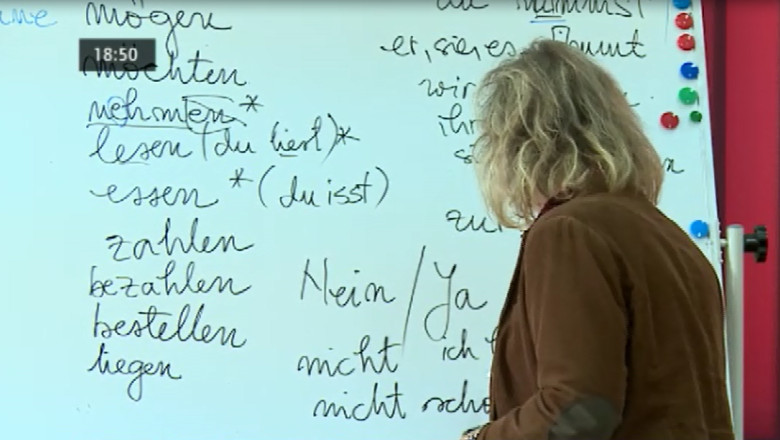 mögen
18:50
möchten
nehmen*
lesen (du liest)*
essen *(du isst)
zahlen
bezahlen
bestellen
liegen
du nimmst
er, sie, es nimmt
wir
ihr
Nein / Ja
nicht ich
nicht